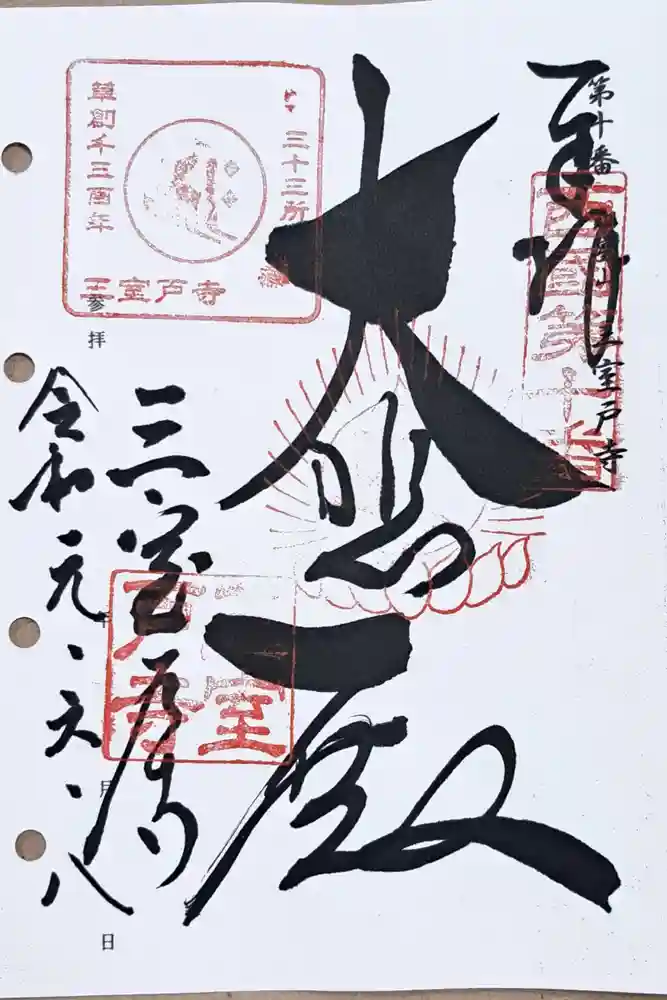 第十番
奉拝
西國第十番
明星山 三室戸寺
大悲殿
三十三所
草創千三百年
三室戸寺
参拝
三室戸寺
三室戸寺
令和元、六、八
年
月
日